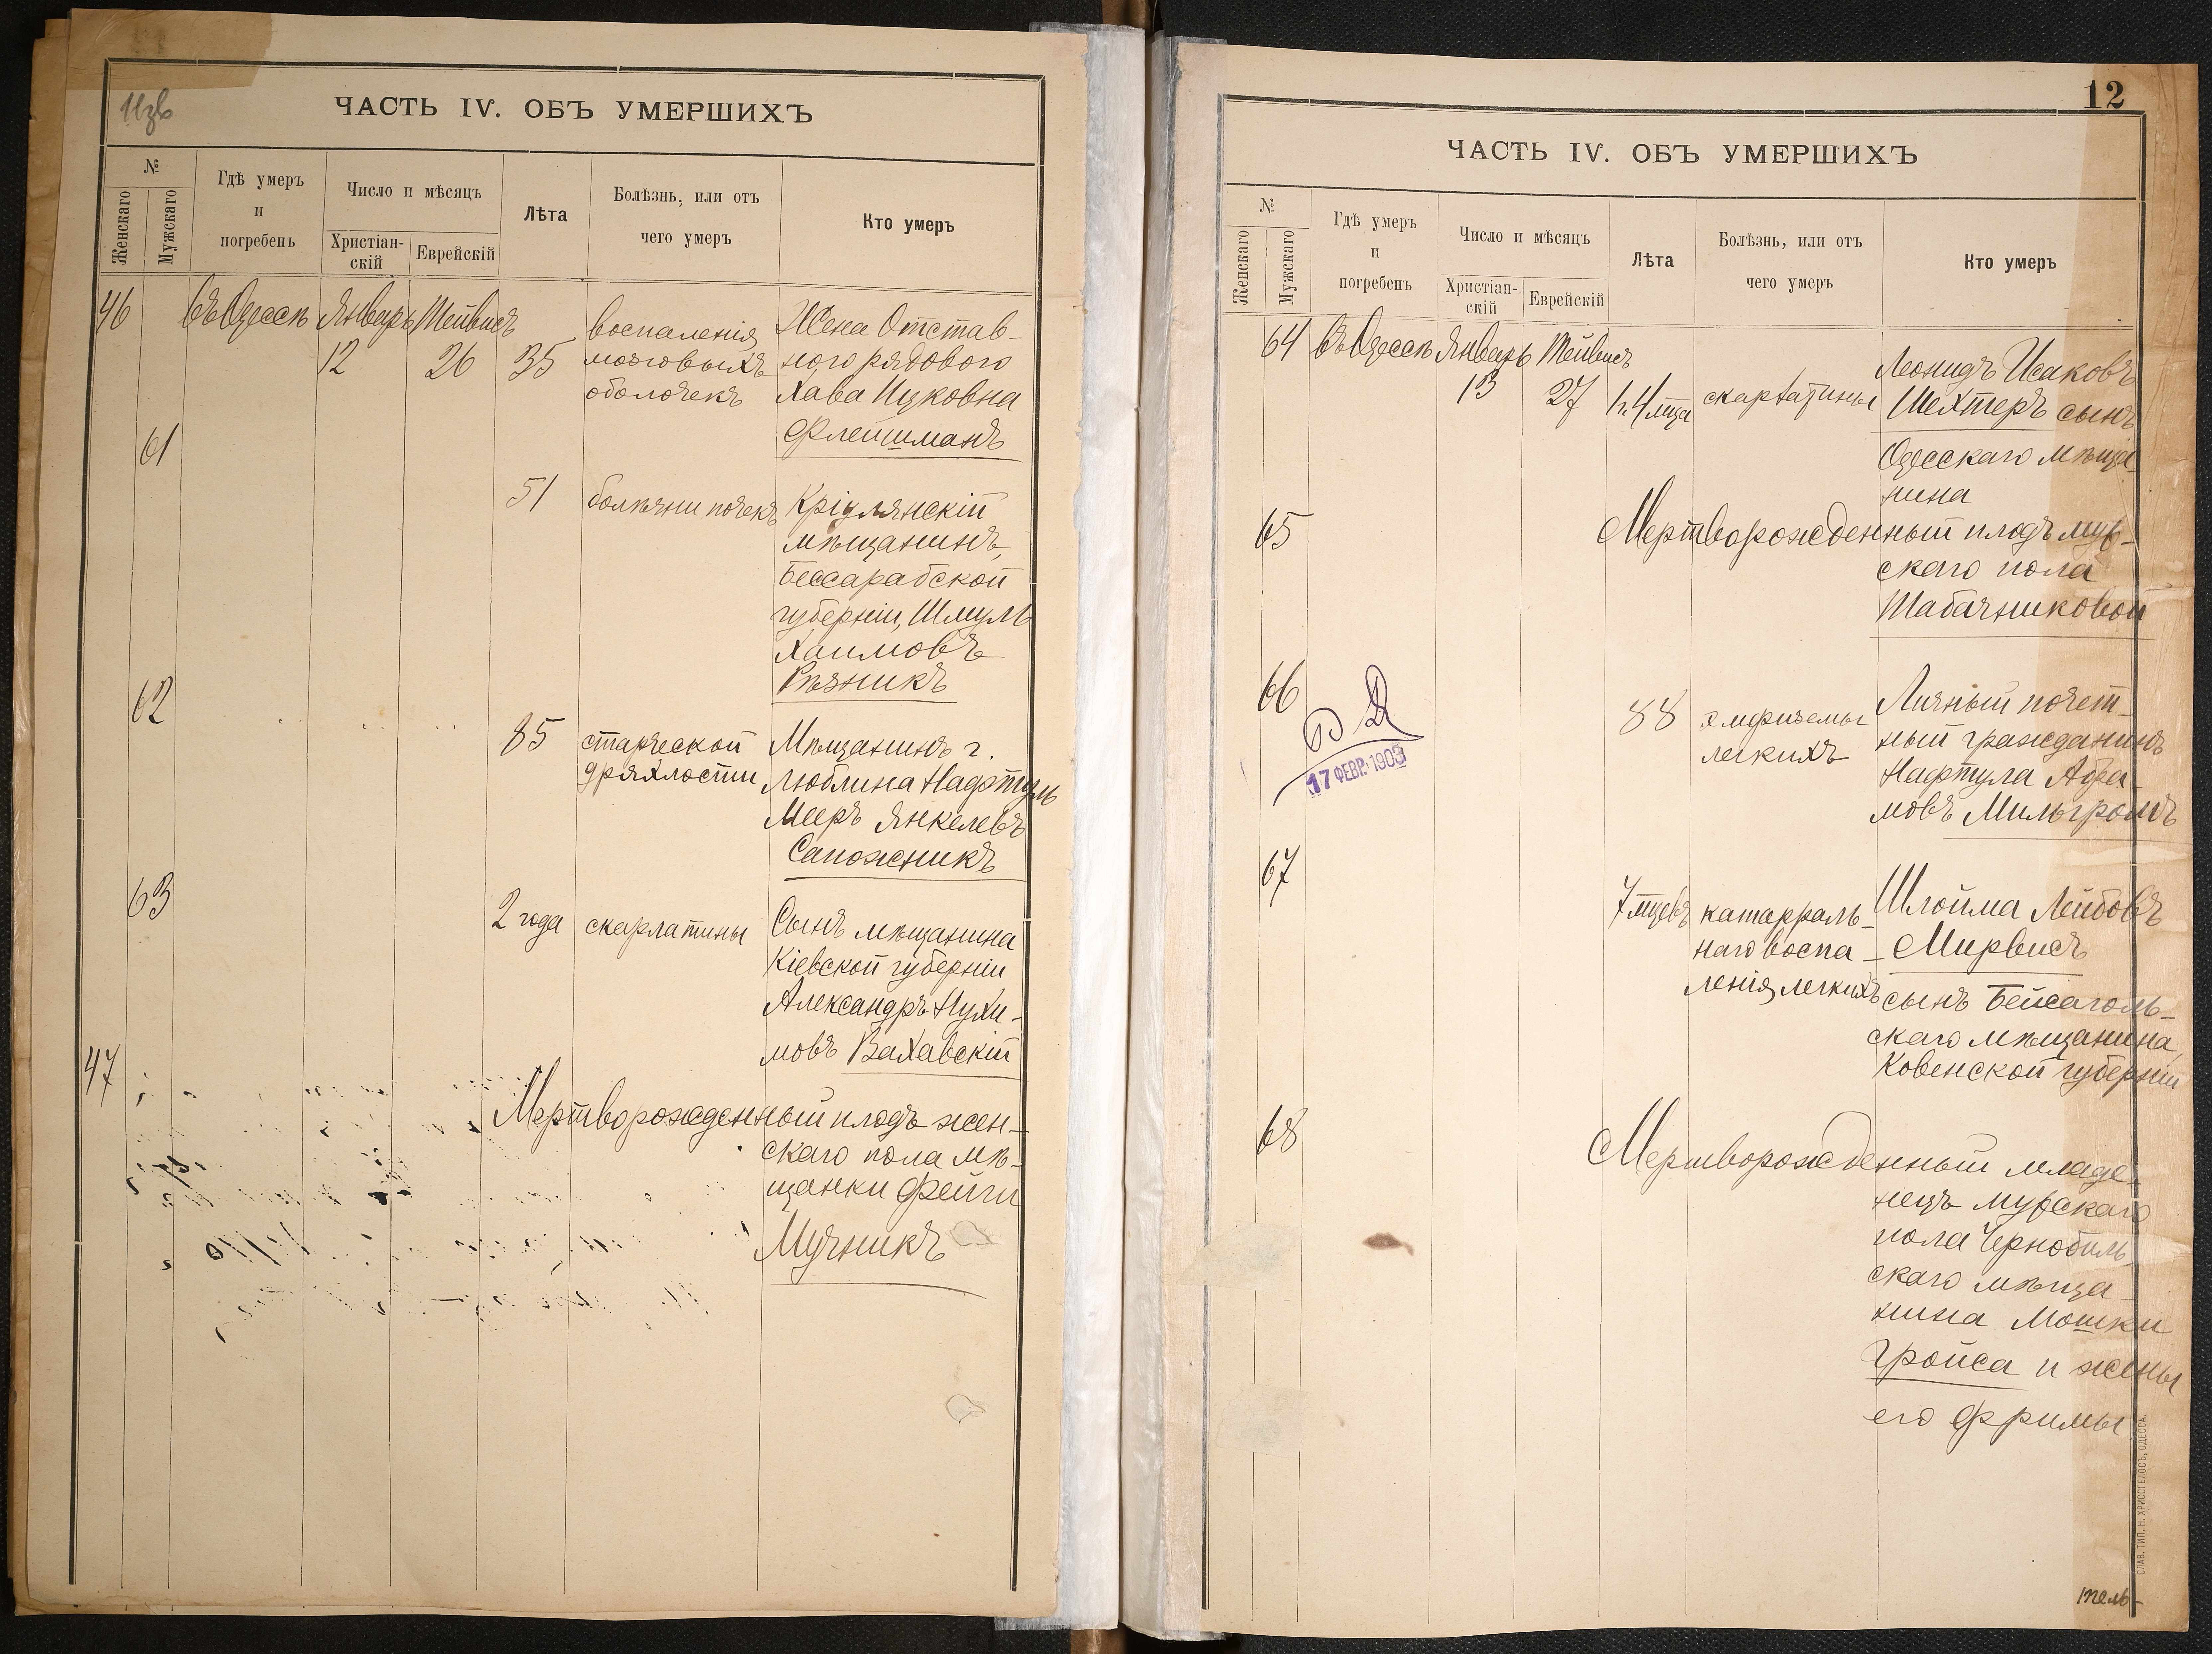 11зв
ЧАСТЬ IV. ОБЪ УМЕРШИХЪ
№
Женскаго
Мужскаго
Гдѣ умеръ
и
погребенъ
Число и мѣсяцъ
Христіан-
скій
Еврейскій
Лѣта
Болѣзнь, или отъ
чего умеръ
Кто умеръ
46
въ Одессѣ
Январь
12
Тейвисъ
26
35
воспаленія
мозговыхъ
оболочекъ
Жена Отстав-
ного рядового
Хава Ицковна
Флейшманъ
61
51
болѣзни почекъ
Кріулянскій
мѣщанинъ,
Бессарабской
губерніи, Шмуль
Хаимовъ
Рѣзникъ
62
85
старческой
дряхлости
Мѣщанинъ г.
Люблина Нафтуль
Мееръ Янкелевъ
Сапожникъ
63
2 года
скарлатины
Сынъ мѣщанина
Кіевской губерніи
Александръ Нухи-
мовъ Вахавскій
47
Мертворожденный плодъ жен-
скаго пола мѣ-
щанки Фейги
Мучникъ
12
ЧАСТЬ IV. ОБЪ УМЕРШИХЪ
№
Женскаго
Мужскаго
Гдѣ умеръ
и
погребенъ
Число и мѣсяцъ
Христіан-
скій
Еврейскій
Лѣта
Болѣзнь, или отъ
чего умеръ
Кто умеръ
64
въ Одессѣ
Январь
13
Тейвисъ
27
1г. 4 мца
скарлатины
Леонидъ Исаковъ
Шехтеръ сынъ
Одесскаго мѣща-
нина
65
Мертворожденный плодъ муж-
скаго пола
Табачниковой
66
17 ФЕВР. 1903
88
эмфиземы
легкихъ
Личный почет-
ный гражданинъ
Нафтула Абра-
мовъ Мильгромъ
67
7 мцевъ
катарраль-
наго воспа-
ленія легкихъ
Шлойма Лейбовъ
Мирвисъ
сынъ Бейсаголь-
скаго мѣщанина,
Ковенской губерніи
68
Мертворожденный младе-
нецъ мужскаго
пола Чернобыль-
скаго мѣща-
нина Мошки
Гройса и жены
его Фримы
СЛАВ. ТИП. Н. ХРИСОГЕЛОСЪ, ОДЕССА.
тель-